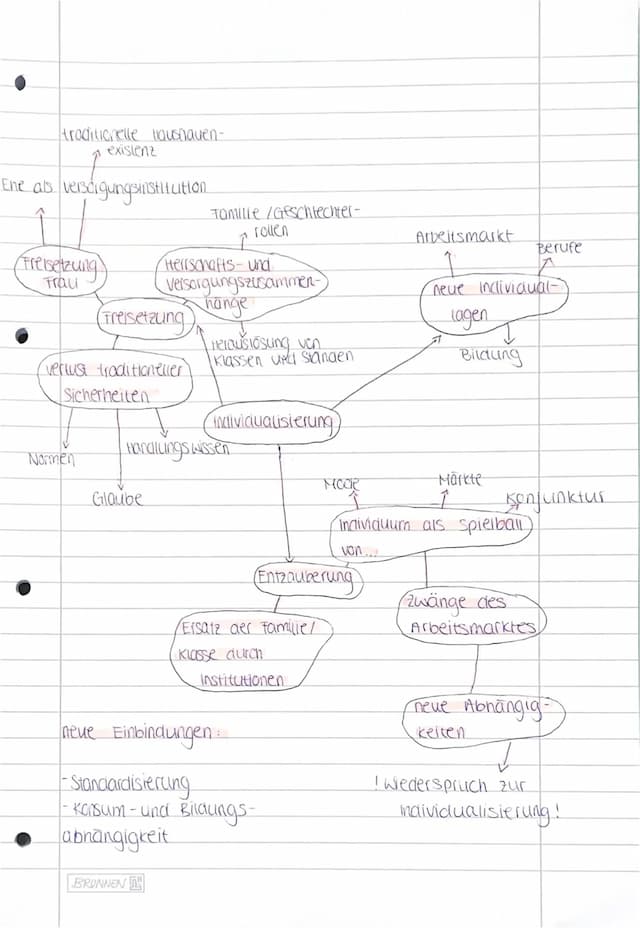 traditionelle Hausfrauen-
existenz
Ehe als Versorgungsinstitution
Familie / Geschlechter-
rollen
Arbeitsmarkt
Berufe
Freisetzung
Frau
Herrschafts- und
Versorgungszusammen-
hänge
neue Individual-
lagen
Freisetzung
Herauslösung von
Klassen und Ständen
Bildung
Verlust traditioneller
Sicherheiten
Individualisierung
Normen
Handlungswissen
Glaube
Mode
Märkte
Konjunktur
Individuum als Spielball
von...
Entzauberung
Zwänge des
Arbeitsmarktes
Ersatz der Familie/
Klasse durch
Institutionen
neue Abhängig-
keiten
neue Einbindungen:
! Wiederspruch zur
Individualisierung!
- Standardisierung
- Konsum - und Bildungs-
abhängigkeit
BRUNNEN